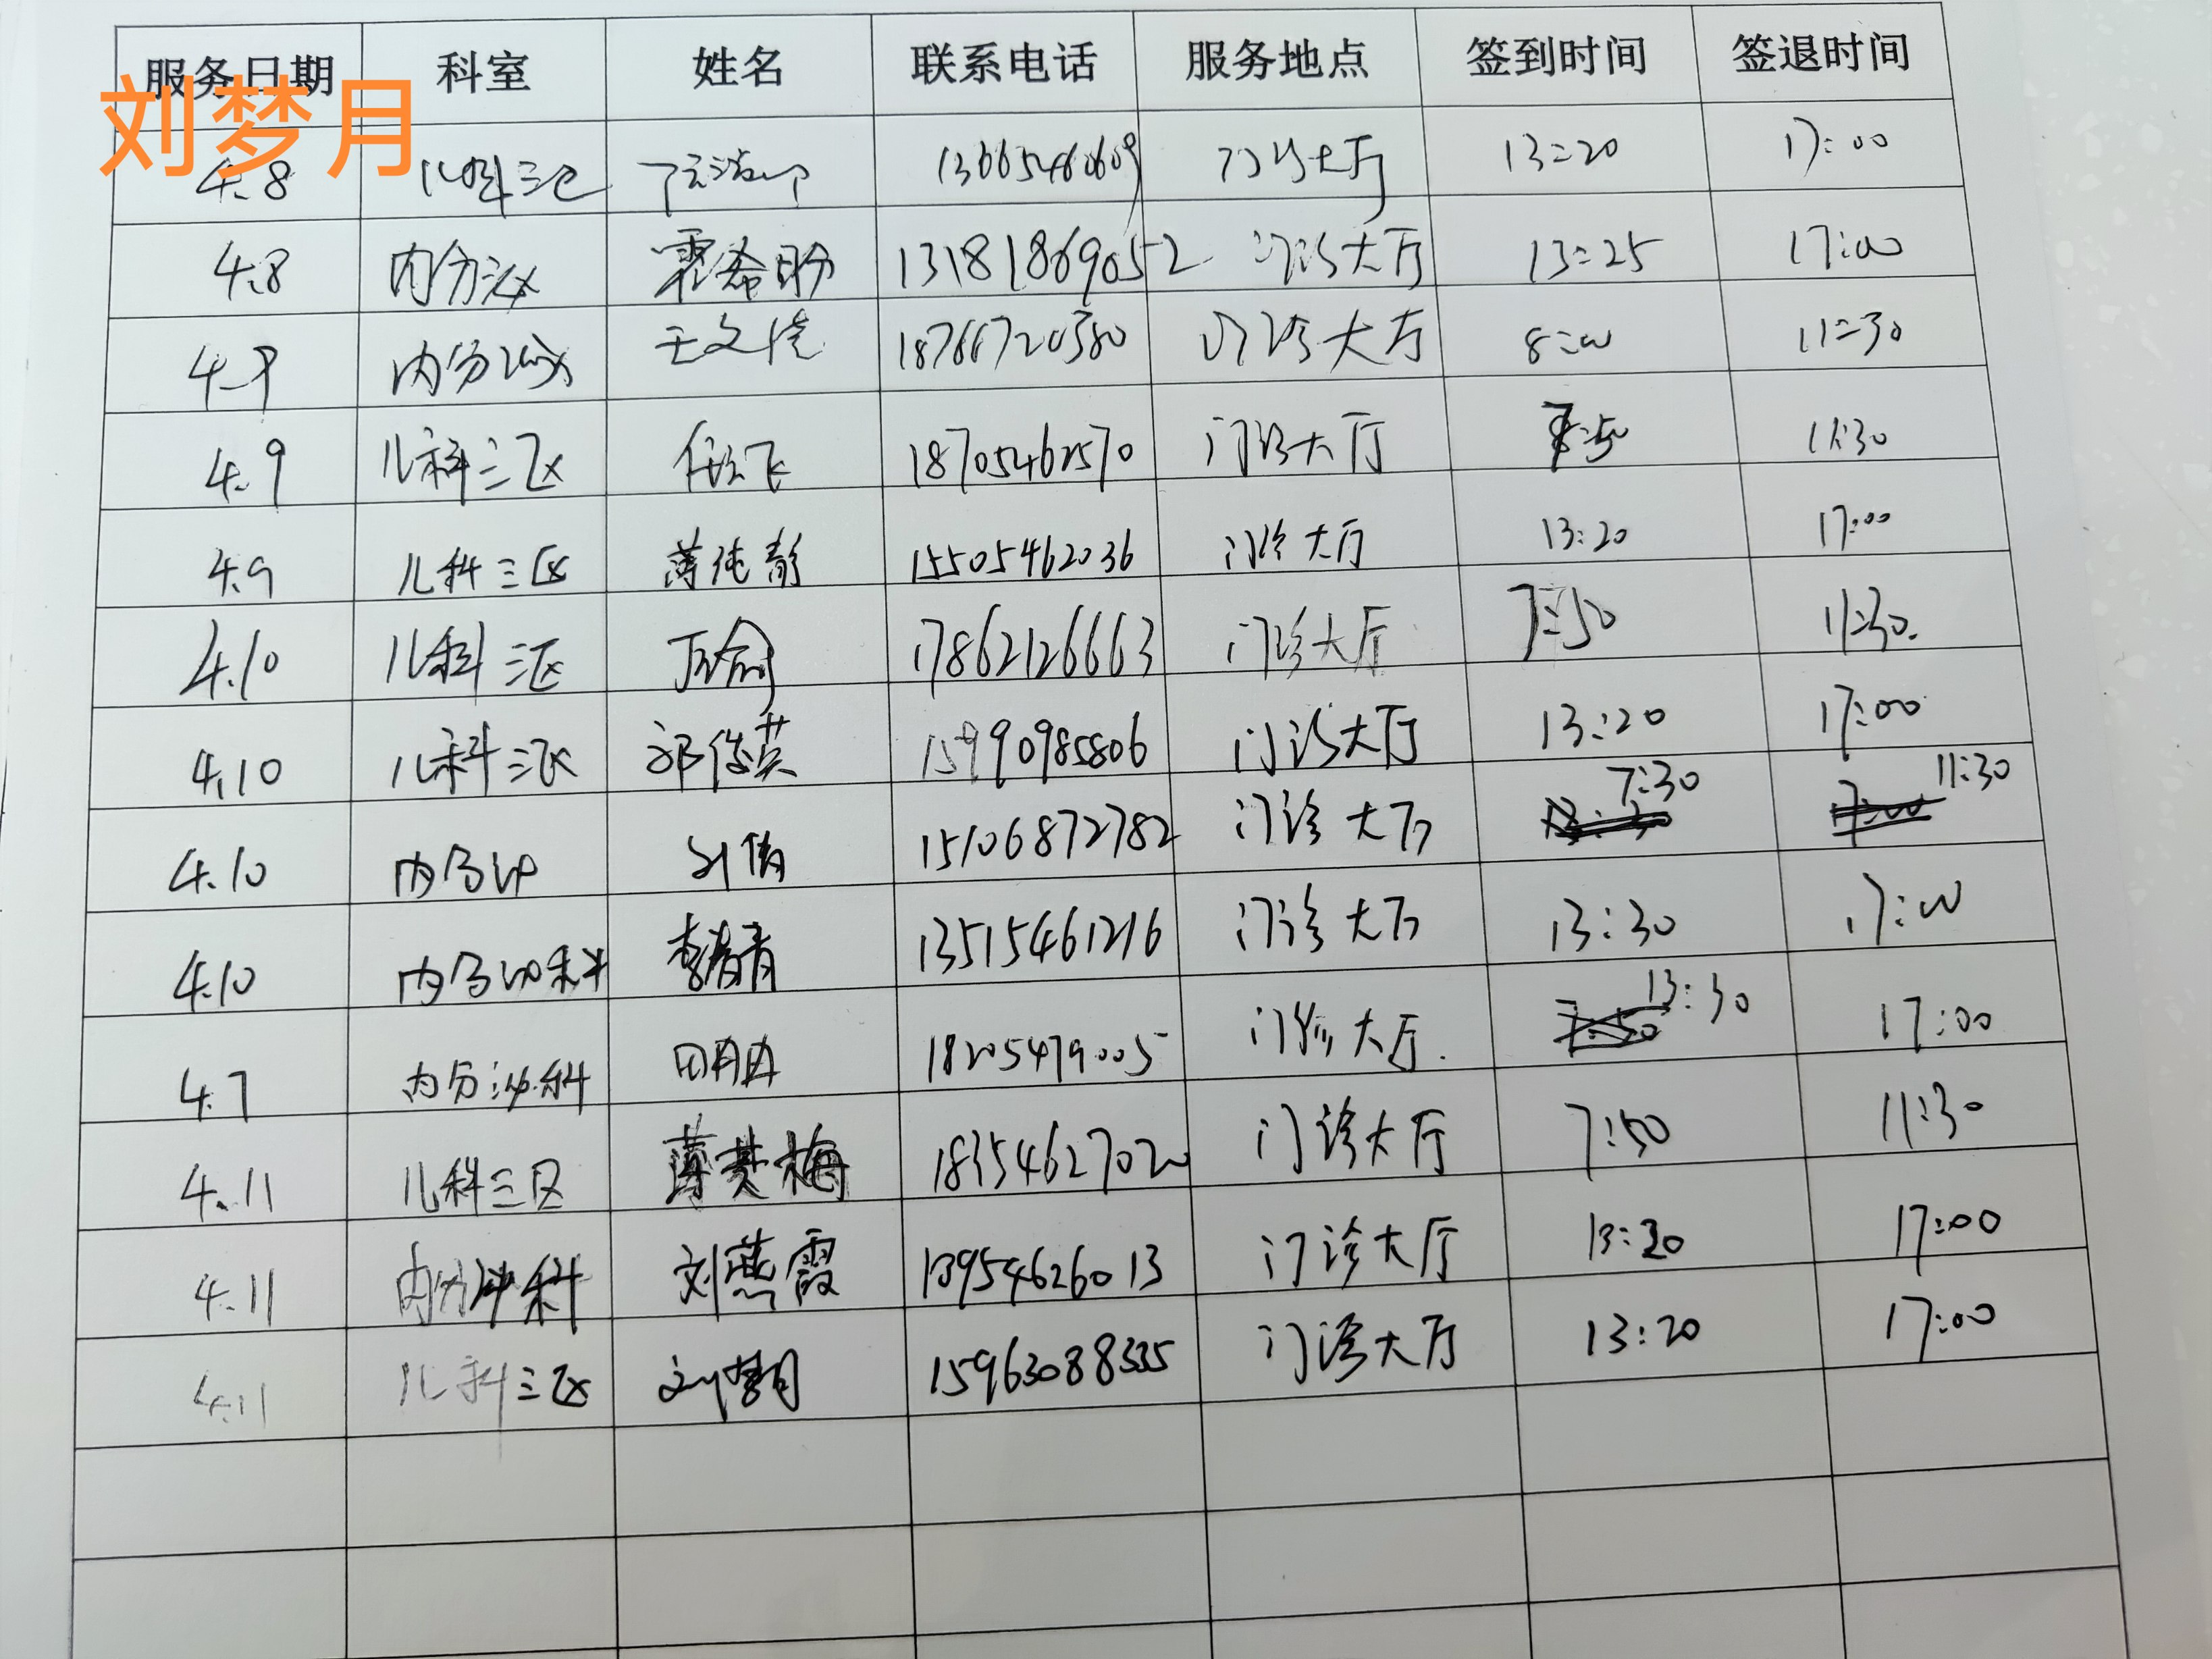 服务日期 科室 姓名 联系电话 服务地点 签到时间 签退时间
刘梦月
4.8 儿科三区 13665460609 门诊大厅 13:20 17:00
4.8 内分泌 霍希盼 13181869052 门诊大厅 13:25 17:00
4.9 内分泌 王文倩 18766720380 门诊大厅 8:00 11:30
4.9 儿科三区 18705462570 门诊大厅 7:50 11:30
4.9 儿科三区 薄纯静 15505462036 门诊大厅 13:20 17:00
4.10 儿科三区 17862126663 门诊大厅 7:50 11:30
4.10 儿科三区 郭俊英 15990985806 门诊大厅 13:20 17:00
4.10 内分泌 刘倩 15106872782 门诊大厅 7:30 11:30
4.10 内分泌科 李青青 13515461216 门诊大厅 13:30 17:00
4.7 内分泌科 田冉冉 18205479005 门诊大厅 13:30 17:00
4.11 儿科三区 薄其梅 18354627020 门诊大厅 7:50 11:30
4.11 内分泌科 刘燕霞 13954626013 门诊大厅 13:20 17:00
4.11 儿科三区 刘梦月 15963088335 门诊大厅 13:20 17:00